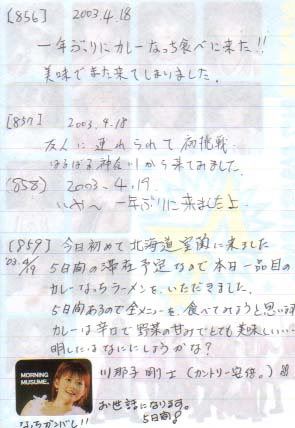 [856] 2003.4.18
一年ぶりにカレーなっち食べに来た!!
美味でまた来てしまいました.
[857] 2003.4.18
友人に連れられて初挑戦.
はるばる神奈川から来てみました.
(858) 2003.4.19.
いや〜 一年ぶりに来ましたよ.
[859] 今日初めて北海道室蘭に来ました
'03.4/19 5日間の滞在予定なので本日一品目の
カレーなっちラーメンを、いただきました.
5日間あるので全メニューを、食べてみようと思います
カレーは辛口で野菜の甘みでとても美味しい…
明日はなにしようかな?
MORNING MUSUME。
川那子 士(カントリー安倍。)
お世話になります。
5日間!
なっちガンバレ!!